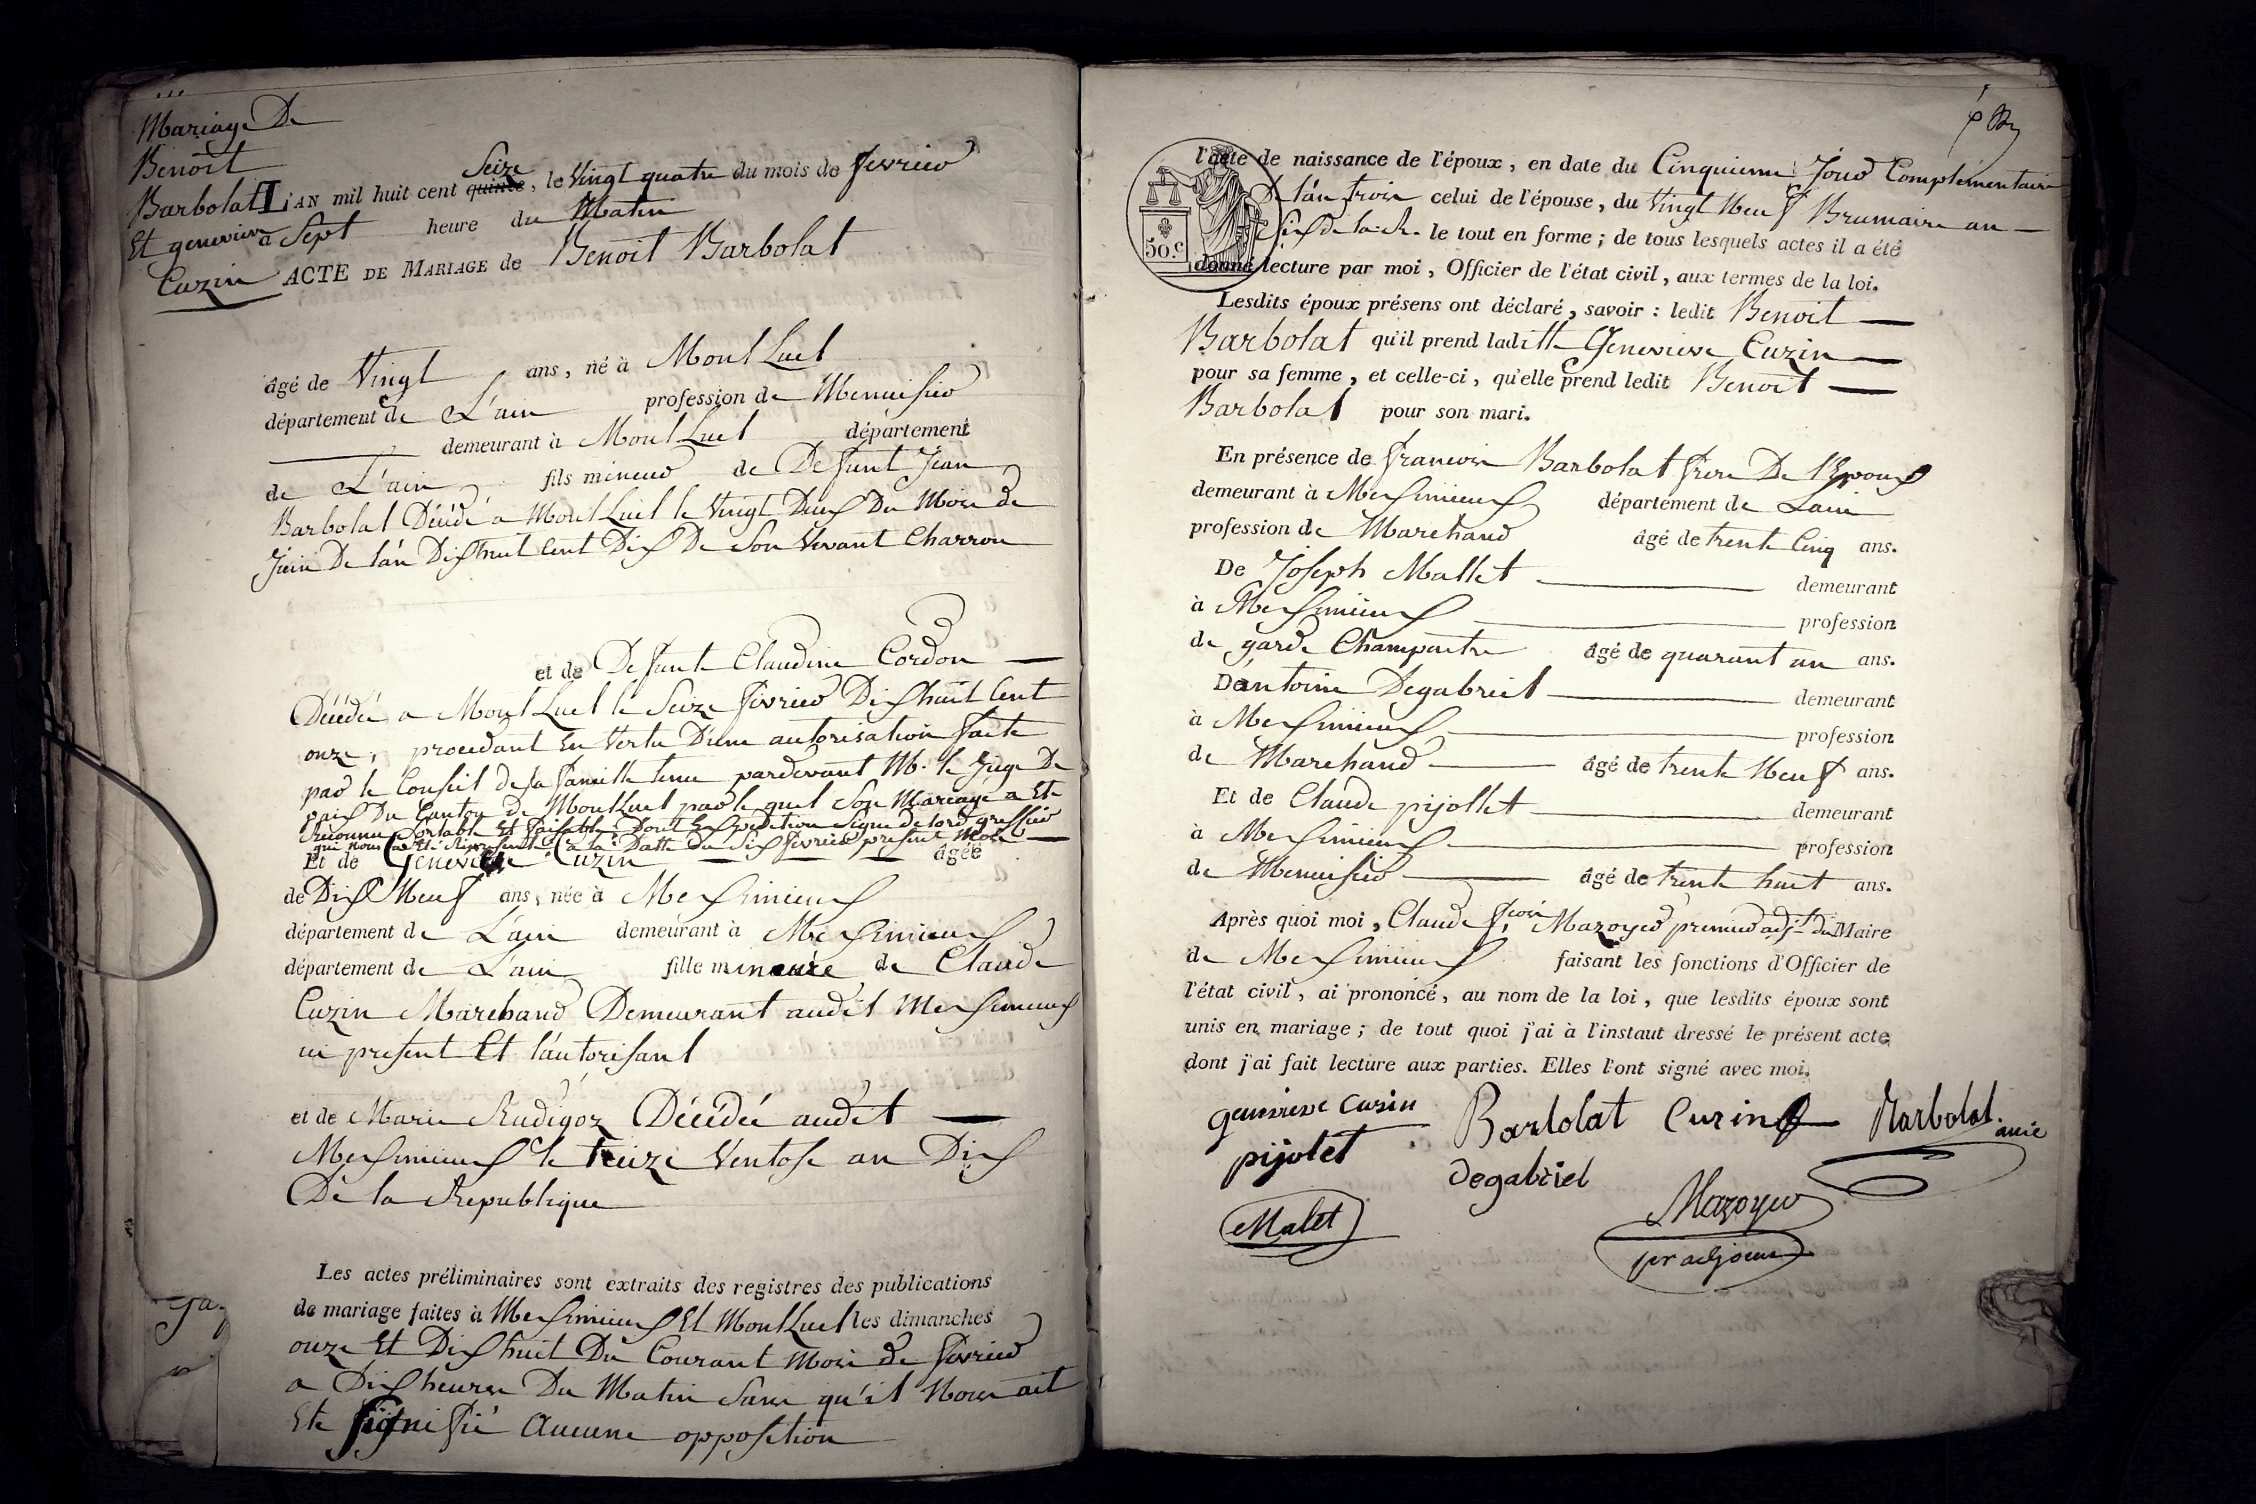 Mariage De
Benoit
Barbolat
Et genevieve
Cuzin
Seize
L'AN mil huit cent quinze, le Vingt quatre du mois de fevrier
à Sept heure du Matin
ACTE DE MARIAGE de Benoit Barbolat
âgé de Vingt ans, né à MontLuel
département de L'ain profession de Menuisier
demeurant à MontLuel département
de L'ain fils mineur de Defunt Jean
Barbolat Décédé a MontLuel le Vingt Deux Du Mois de
Juin De L'an Dixhuit Cent Dix De Son Vivant Charron
et de Defunte Claudine Cordon
Décédée a MontLuel le Seize fevrier Dixhuit Cent
onze, procedant En Vertu D'une autorisation faite
par le Conseil de sa famille tenu pardevant Mr. le Juge De
paix Du Canton de MontLuel par le quel Son Mariage a Ete
Reconnu Sortable Et faisable, Dont Expedition Signe Delord greffier
qui nous a Eté Representée a la Datte du Six fevrier present Mois
Et de Genevieve Cuzin âgée
de Dix Neuf ans, née à Meximieux
département de L'ain demeurant à Meximieux
département de L'ain fille mineure de Claude
Cuzin Marchand Demeurant audit Meximieux
ici present Et l'autorisant
et de Marie Rudigoz Décédée audit
Meximieux le treize Ventose an Dix
De la Republique
Les actes préliminaires sont extraits des registres des publications
de mariage faites à Meximieux Et MontLuel les dimanches
onze Et Dixhuit Du Courant Mois de fevrier
a Dix heures Du Matin Sans qu'il Nous ait
Ete signifié Aucune opposition
50 c.
l'acte de naissance de l'époux, en date du Cinquieme Jour Complémentaire
De l'an trois celui de l'épouse, du Vingt Neuf Brumaire an
Six de la R. le tout en forme; de tous lesquels actes il a été
donné lecture par moi, Officier de l'état civil, aux termes de la loi.
Lesdits époux présens ont déclaré, savoir: ledit Benoit
Barbolat qu'il prend laditte Genevieve Cuzin
pour sa femme, et celle-ci, qu'elle prend ledit Benoit
Barbolat pour son mari.
En présence de francois Barbolat frere De l'Epoux
demeurant à Meximieux département de Lain
profession de Marchand âgé de trente Cinq ans.
De Joseph Mallet demeurant
à Meximieux profession
de garde Champaitre âgé de quarant un ans.
Dantoine Degabriel demeurant
à Meximieux profession
de Marchand âgé de trente Neuf ans.
Et de Claude pijollet demeurant
à Meximieux profession
de Menuisier âgé de trente huit ans.
Après quoi moi, Claude fcois Mazoyer premier adjt du Maire
de Meximieux faisant les fonctions d'Officier de
l'état civil, ai prononcé, au nom de la loi, que lesdits époux sont
unis en mariage; de tout quoi j'ai à l'instaut dressé le présent acte
dont j'ai fait lecture aux parties. Elles l'ont signé avec moi.
genvieve cusin Barbolat Curin Barbolat
pijolet degabriel
Malet Mazoyer
pr adjoint